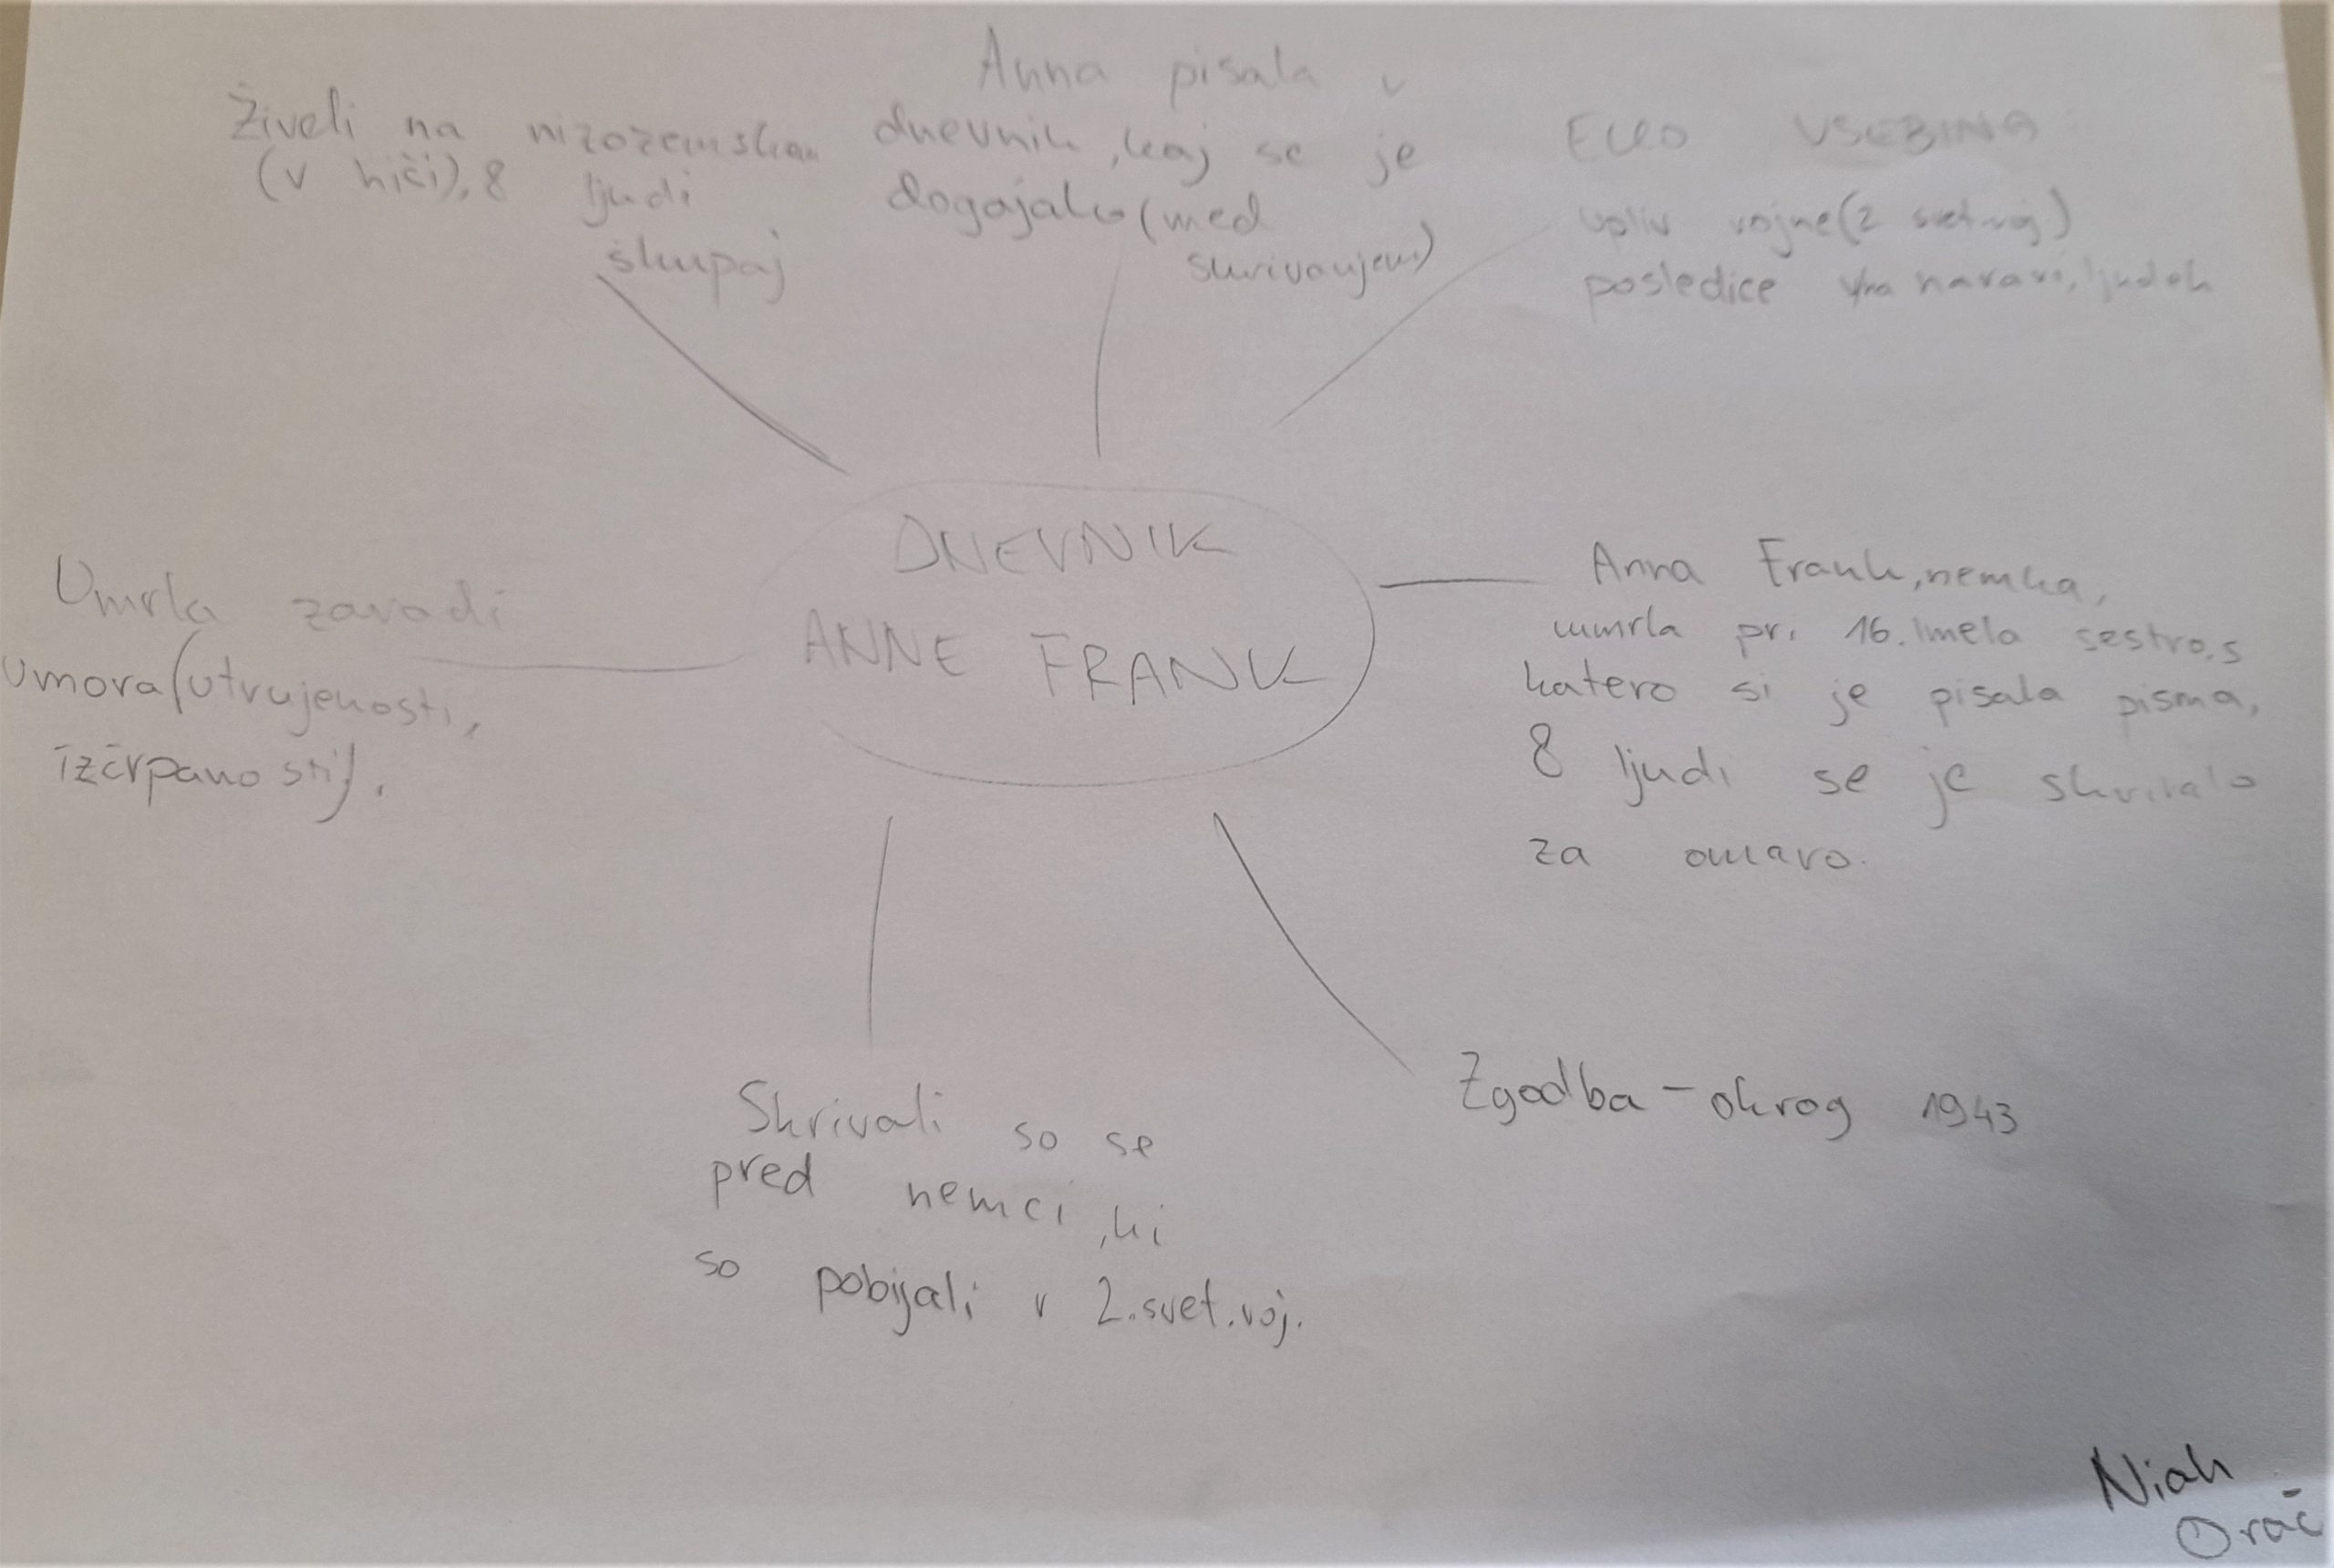 Živeli na nizozemskem
(v hiči), 8 ljudi
skupaj
Anna pisala v
dnevnik, kaj se je
dogajalo (med
skrivanjem)
EKO VSEBINA
vpliv vojne (2 svet.voj)
posledice na naravi, ljudeh
DNEVNIK
ANNE FRANK
Anna Frank, nemka,
umrla pri 16. Imela sestro, s
katero si je pisala pisma,
8 ljudi se je skrivalo
za omaro.
Umrla zavodi
umora (utrujenosti,
izčrpanosti).
Skrivali so se
pred nemci, ki
so pobijali v 2.svet.voj.
Zgodba - okrog 1943
Niak
Orač